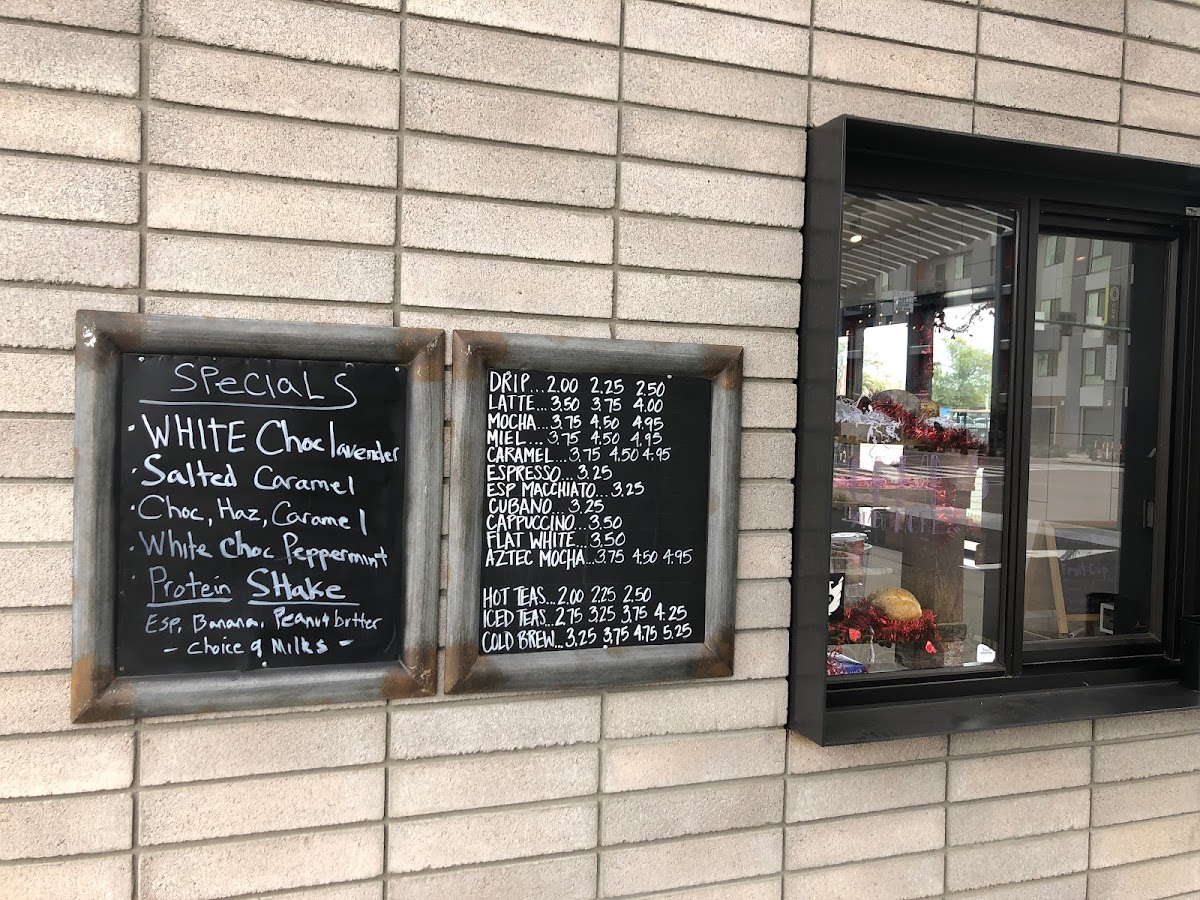 SPecials
· WHITE Choc lavender
· Salted Caramel
· Choc, Haz, Caramel
· White Choc Peppermint
· Protein SHake
Esp, Banana, Peanut butter
- Choice of Milks -
DRIP...2.00 2.25 2.50
LATTE...3.50 3.75 4.00
MOCHA...3.75 4.50 4.95
MIEL...3.75 4.50 4.95
CARAMEL...3.75 4.50 4.95
ESPRESSO...3.25
ESP MACCHIATO...3.25
CUBANO...3.25
CAPPUCCINO...3.50
FLAT WHITE...3.50
AZTEC MOCHA...3.75 4.50 4.95
HOT TEAS...2.00 2.25 2.50
ICED TEAS...2.75 3.25 3.75 4.25
COLD BREW...3.25 3.75 4.75 5.25